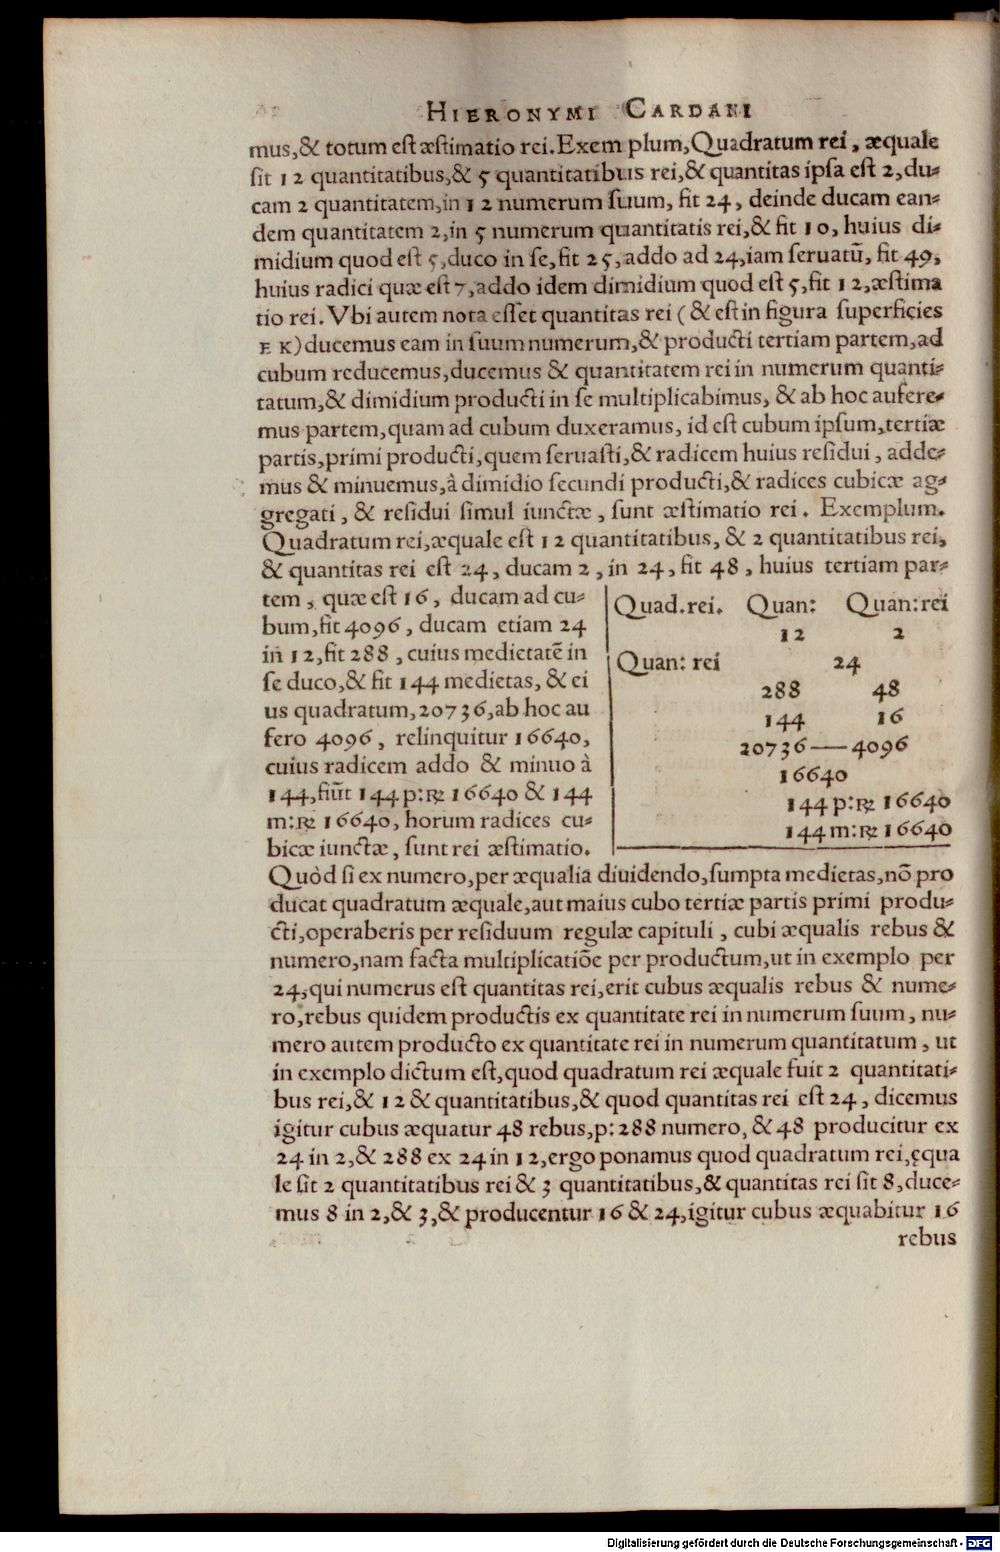 HIERONYMI CARDANI
mus,& totum est æstimatio rei. Exem plum, Quadratum rei, æquale
sit 12 quantitatibus,& 5 quantitatibus rei,& quantitas ipsa est 2, du-
cam 2 quantitatem, in 12 numerum suum, fit 24, deinde ducam ean-
dem quantitatem 2, in 5 numerum quantitatis rei,& fit 10, huius di-
midium quod est 5, duco in se, fit 25, addo ad 24, iam seruatū, fit 49,
huius radici quæ est 7, addo idem dimidium quod est 5, fit 12, æstima
tio rei. Vbi autem nota esset quantitas rei (& est in figura superficies
E K) ducemus eam in suum numerum,& producti tertiam partem, ad
cubum reducemus, ducemus & quantitatem rei in numerum quanti-
tatum,& dimidium producti in se multiplicabimus, & ab hoc aufere-
mus partem, quam ad cubum duxeramus, id est cubum ipsum, tertiæ
partis, primi producti, quem seruasti,& radicem huius residui, adde-
mus & minuemus, à dimidio secundi producti,& radices cubicæ ag-
gregati, & residui simul iunctæ, sunt æstimatio rei. Exemplum.
Quadratum rei, æquale est 12 quantitatibus, & 2 quantitatibus rei,
& quantitas rei est 24, ducam 2, in 24, fit 48, huius tertiam par-
tem, quæ est 16, ducam ad cu-
bum, fit 4096, ducam etiam 24
in 12, fit 288, cuius medietatē in
se duco,& fit 144 medietas, & ei
us quadratum, 20736, ab hoc au
fero 4096, relinquitur 16640,
cuius radicem addo & minuo à
144, fiūt 144 p:℞ 16640 & 144
m:℞ 16640, horum radices cu-
bicæ iunctæ, sunt rei æstimatio.
Quad.rei. Quan: Quan:rei
12 2
Quan: rei 24
288 48
144 16
20736——4096
16640
144 p:℞ 16640
144 m:℞ 16640
Quòd si ex numero, per æqualia diuidendo, sumpta medietas, nō pro
ducat quadratum æquale, aut maius cubo tertiæ partis primi produ-
cti, operaberis per residuum regulæ capituli, cubi æqualis rebus &
numero, nam facta multiplicatiōe per productum, ut in exemplo per
24, qui numerus est quantitas rei, erit cubus æqualis rebus & nume-
ro, rebus quidem productis ex quantitate rei in numerum suum, nu-
mero autem producto ex quantitate rei in numerum quantitatum, ut
in exemplo dictum est, quod quadratum rei æquale fuit 2 quantitati-
bus rei,& 12 & quantitatibus,& quod quantitas rei est 24, dicemus
igitur cubus æquatur 48 rebus, p: 288 numero, & 48 producitur ex
24 in 2,& 288 ex 24 in 12, ergo ponamus quod quadratum rei, ęqua
le sit 2 quantitatibus rei & 3 quantitatibus,& quantitas rei sit 8, duce-
mus 8 in 2,& 3,& producentur 16 & 24, igitur cubus æquabitur 16
rebus
Digitalisierung gefördert durch die Deutsche Forschungsgemeinschaft - DFG